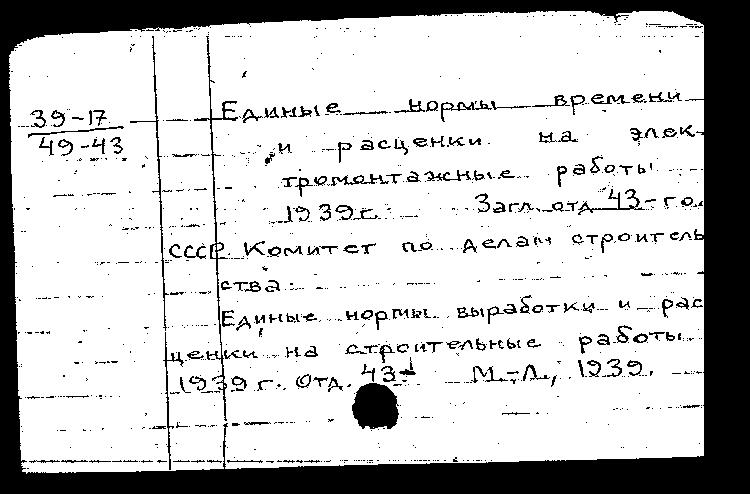 39-17
49-43
Единые нормы времени
и расценки на элек-
тромонтажные работы
1939 г. Загл. отд 43-го.
СССР Комитет по делам строитель
ства.
Единые нормы выработки и рас
ценки на строительные работы
1939 г. Отд. 43- М.-Л., 1939.